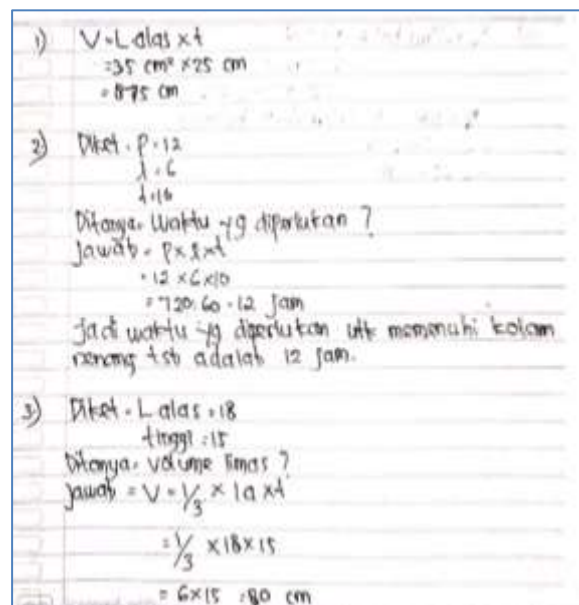 1) V = L alas x t
= 35 cm² x 25 cm
= 875 cm
2) Diket = P = 12
l = 6
t = 10
Ditanya = Waktu yg diperlukan ?
Jawab = P x l x t
= 12 x 6 x 10
= 720 : 60 = 12 Jam
Jadi waktu yg diperlukan utk memenuhi kolam
renang tsb adalah 12 jam.
3) Diket = L alas = 18
tinggi = 15
Ditanya = volume limas ?
Jawab = V = 1/3 x la x t
= 1/3 x 18 x 15
= 6 x 15 = 80 cm